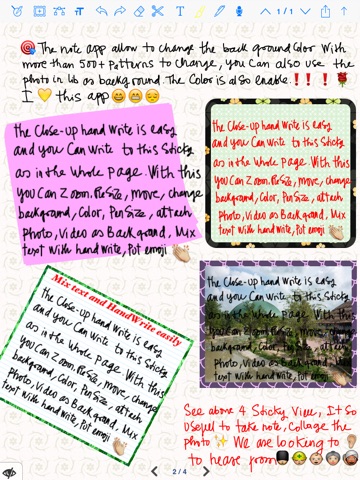 1/1
The note app allow to change the back ground Color With
more than 500+ Patterns to change, you Can also use the
photo in lib as background. The Color is also enable. ❗❗❗🌹
I 💛 this app 😄😁😔
the Close-up hand write is easy
and you Can write to this Sticky
as in the whole Page. With this
you Can Zoom, ReSize, Move, change
background, Color, Pen Size, attach
Photo, Video as Background, Mix
text with hand write, Put emoji 👏
the Close-up hand write is easy
and you Can write to this Sticky
as in the whole Page. With this
you Can Zoom, ReSize, Move, change
background, Color, Pen Size, attach
Photo, Video as Background, Mix
text with hand write, Put emoji 👏
Mix text and HandWrite easily
the Close-up hand write is easy
and you Can write to this Sticky
as in the whole Page. With this
you Can Zoom, ReSize, Move, change
background, Color, Pen Size, attach
Photo, Video as Background, Mix
text with hand write, Put emoji 👏
the Close-up hand write is easy
and you Can write to this Sticky
as in the whole Page. With this
you Can Zoom, ReSize, Move, change
background, Color, Pen Size, attach
Photo, Video as Background, Mix
text with hand write, Put emoji 👏
See above 4 Sticky View, It So
Useful to take note, Collage the
photo ✨ We are looking to 👂
to hease from
2/4